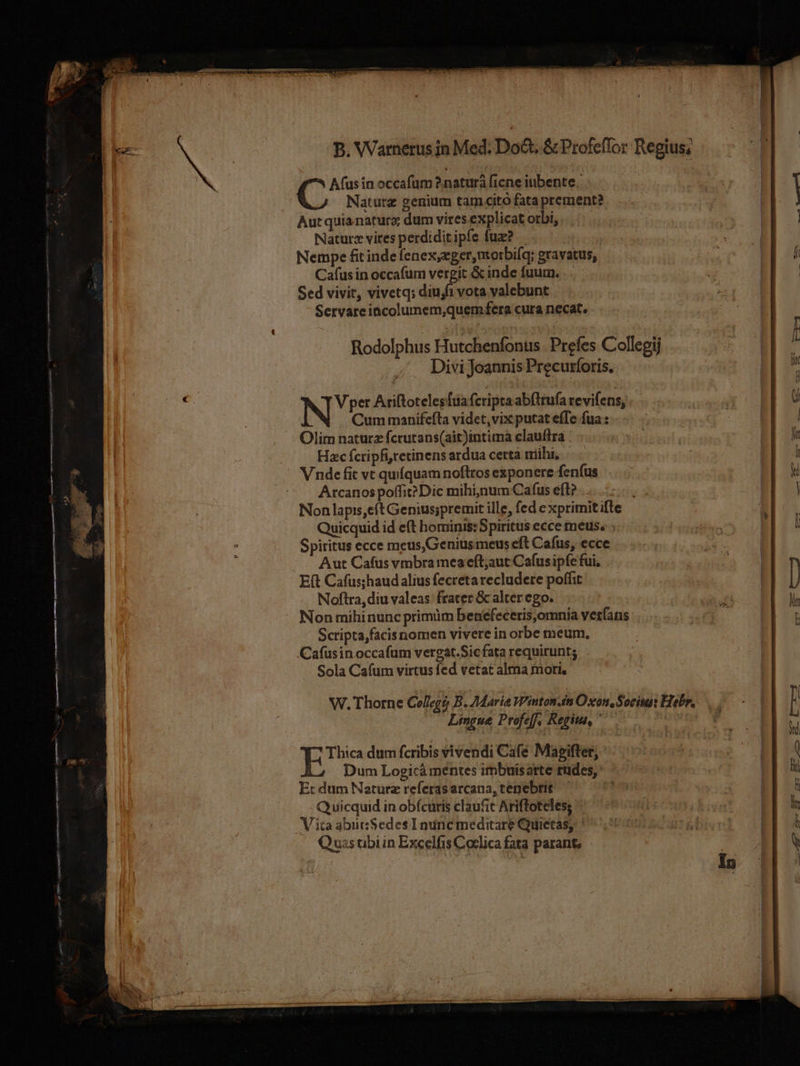 B. VVarnerus in Med. Doct. & Profeſſor Regius;
CAſus in occaſum? naturâ ſicne iubente
Naturæ genium tam citò fata prement?
Aut quia naturæ dum vires explicat orbi,
Naturæ vires perdidit ipſe ſuæ?
Nempe fit inde ſenex, æger, morbiſq; gravatus,
Caſus in occaſum vergit & inde ſuum.
Sed vivit, vivetq; diu, ſi vota valebunt
Servare incolumem, quem fera cura necat.
Rodolphus Hutchenſonus Preſes Collegij
Divi Joannis Precurſoris.
NVper Ariſtoteles ſua ſcripta abſtruſa reviſens,
Cum manifeſta videt, vix putat eſſe ſua:
Olim naturæ ſcrutans (ait) intima clauſtra
Hæc ſcripſi, retinens ardua certa mihi,
Vnde fit vt quiſquam noſtros exponere ſenſus
Arcanos poſſit? Dic mihi, num Caſus eſt?
Non lapis, eſt Genius; premit ille, ſed exprimit iſte
Quicquid id eſt hominis: Spiritus ecce meus.
Spiritus ecce meus, Genius meus eſt Caſus, ecce
Aut Caſus vmbra mea eſt, aut Caſus ipſe fui.
Eſt Caſus; haud alius ſecreta recludere poſſit
Noſtra, diu valeas frater & alter ego.
Non mihi nunc primùm benefeceris, omnia verſans
Scripta, facis nomen vivere in orbe meum.
Caſus in occaſum vergat. Sic fata requirunt;
Sola Caſum virtus ſed vetat alma mori.
W. Thorne Collegij B. Mariæ Winton. in Oxon. Socius: Hebr.
Linguæ Profeſſ. Regius,
EThica dum ſcribis vivendi Caſe Magiſter,
Dum Logicâ mentes imbuis arte rudes,
Et dum Naturæ referas arcana, tenebris
Quicquid in obſcuris clauſit Ariſtoteles;
Vita abiit: Sedes I nunc meditare Quietas,
Quas tibi in Excelſis Cœlica fata parant.
In